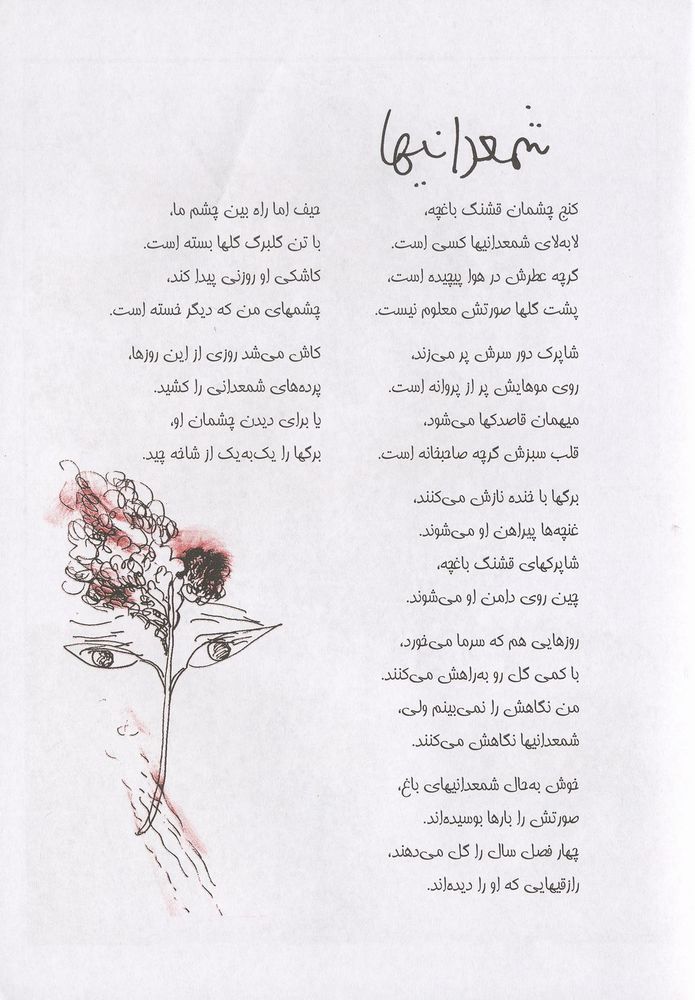 شمعدانیها
کنج چشمان قشنگ باغچه،
لابه‌لای شمعدانیها کسی است.
گرچه عطرش در هوا پیچیده است،
پشت گلها صورتش معلوم نیست.
شاپرک دور سرش پر می‌زند،
روی موهایش پر از پروانه است.
میهمان قاصدکها می‌شود،
قلب سبزش گرچه صاحبخانه است.
برگها با خنده نازش می‌کنند،
غنچه‌ها پیراهن او می‌شوند.
شاپرکهای قشنگ باغچه،
چین روی دامن او می‌شوند.
روزهایی هم که سرما می‌خورد،
با کمی گل رو به‌راهش می‌کنند.
من نگاهش را نمی‌بینم ولی،
شمعدانیها نگاهش می‌کنند.
خوش به‌حال شمعدانیهای باغ،
صورتش را بارها بوسیده‌اند.
چهار فصل سال را گل می‌دهند،
رازقیهایی که او را دیده‌اند.
حیف اما راه بین چشم ما،
با تن گلبرگ گلها بسته است.
کاشکی او روزنی پیدا کند،
چشمهای من که دیگر خسته است.
کاش می‌شد روزی از این روزها،
پرده‌های شمعدانی را کشید.
یا برای دیدن چشمان او،
برگها را یک‌به‌یک از شاخه چید.